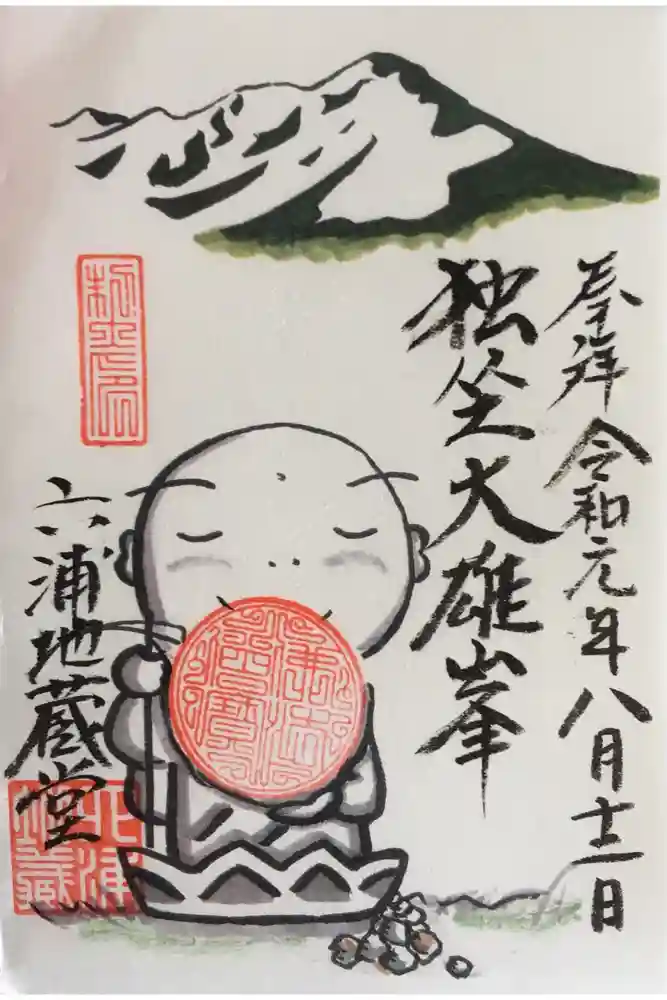 奉拝 令和元年八月十二日
独坐大雄峯
六浦地蔵堂
六浦
地蔵